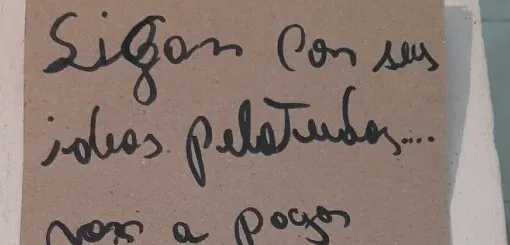 Sigan con sus
ideas pelotudas....
van a pagar